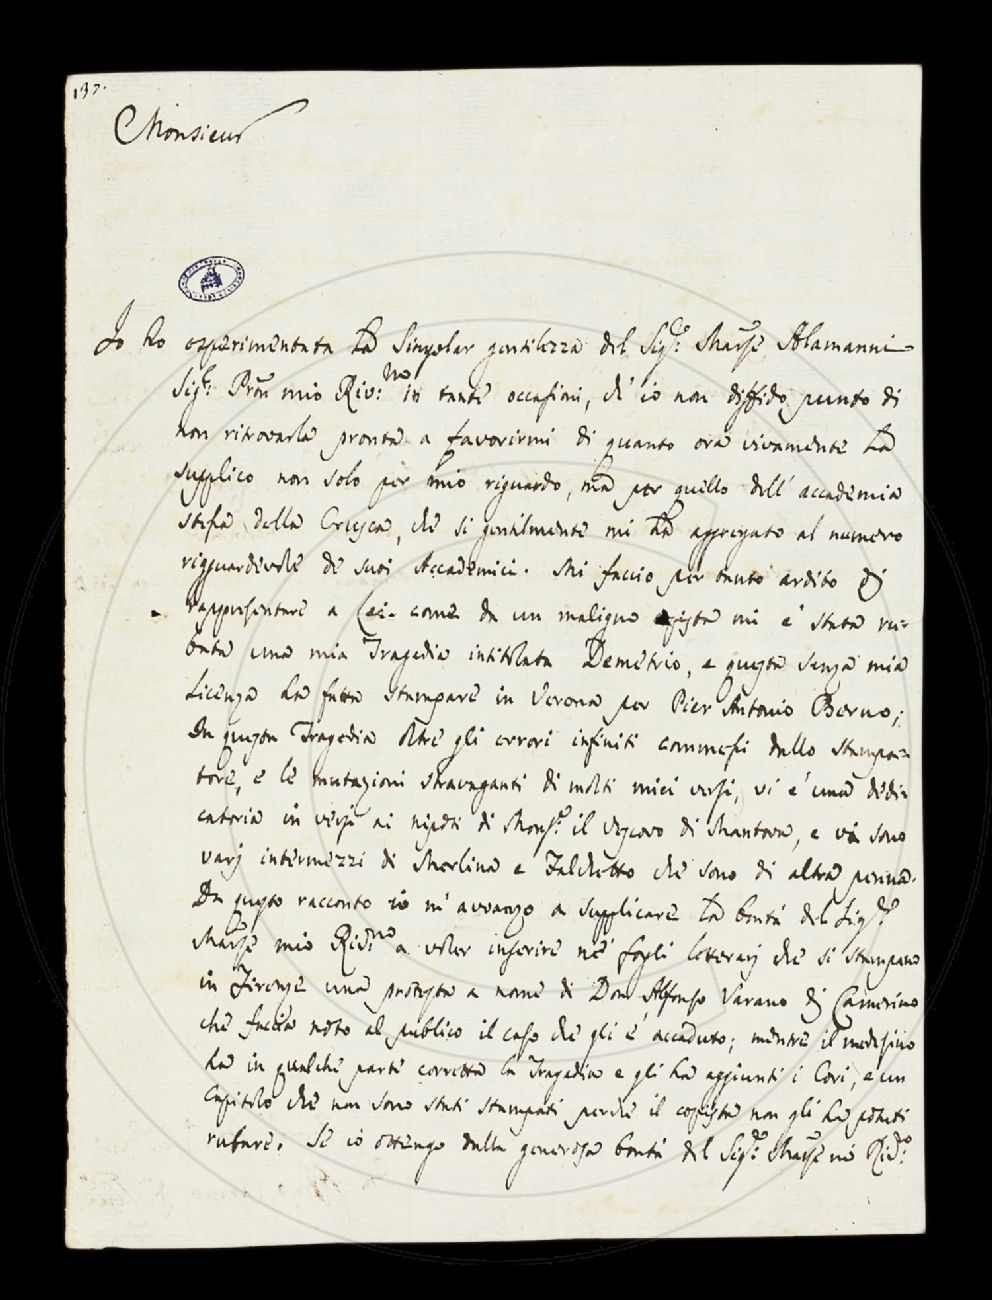 137.
Monsieur
Io ho esperimentata la singolar gentilezza del Sig.r March.e Alamanni
Sig.r Pron mio Riv.mo in tante occasioni, che io non diffido punto di
non ritrovarla pronta a favorirmi di quanto ora vivamente la
supplico non solo per mio riguardo, ma per quello dell' accademia
stessa della Crusca, che si gentilmente mi ha aggregato al numero
rigguardevole de suoi Accademici. Mi faccio per tanto ardito di
rappresentare a Lei come da un maligno copista mi e' stata ru=
bata una mia Tragedia intitolata Demetrio, e questa senza mia
licenza ha fatta stampare in Verona per Pier Antonio Berno;
In questa Tragedia oltre gli errori infiniti commessi dallo stampa=
tore, e le mutazioni stravaganti di molti miei versi, vi e' una dedi=
catoria in versi ai nipoti di Mons.r il Vescovo di Mantova, e vi sono
varj intermezzi di Merlina e Falchetto che sono di altra penna.
Da questo racconto io m' avvanzo a supplicare la bontà del Sig.r
March.e mio Riv.mo a voler inserire ne' fogli letterarj che si stampano
in Firenze una protesta a nome di Don Alfonso Varano di Camerino
che faccia noto al publico il caso che gli e' accaduto; mentre il medesimo
ha in qualche parte corretta la Tragedia e gli ha aggiunti i Cori, e un
Capitolo che non sono stati stampati perche il copista non gli ha potuti
rubare. Se io ottengo dalla generosa bontà del Sig.r March.e mio Riv.mo